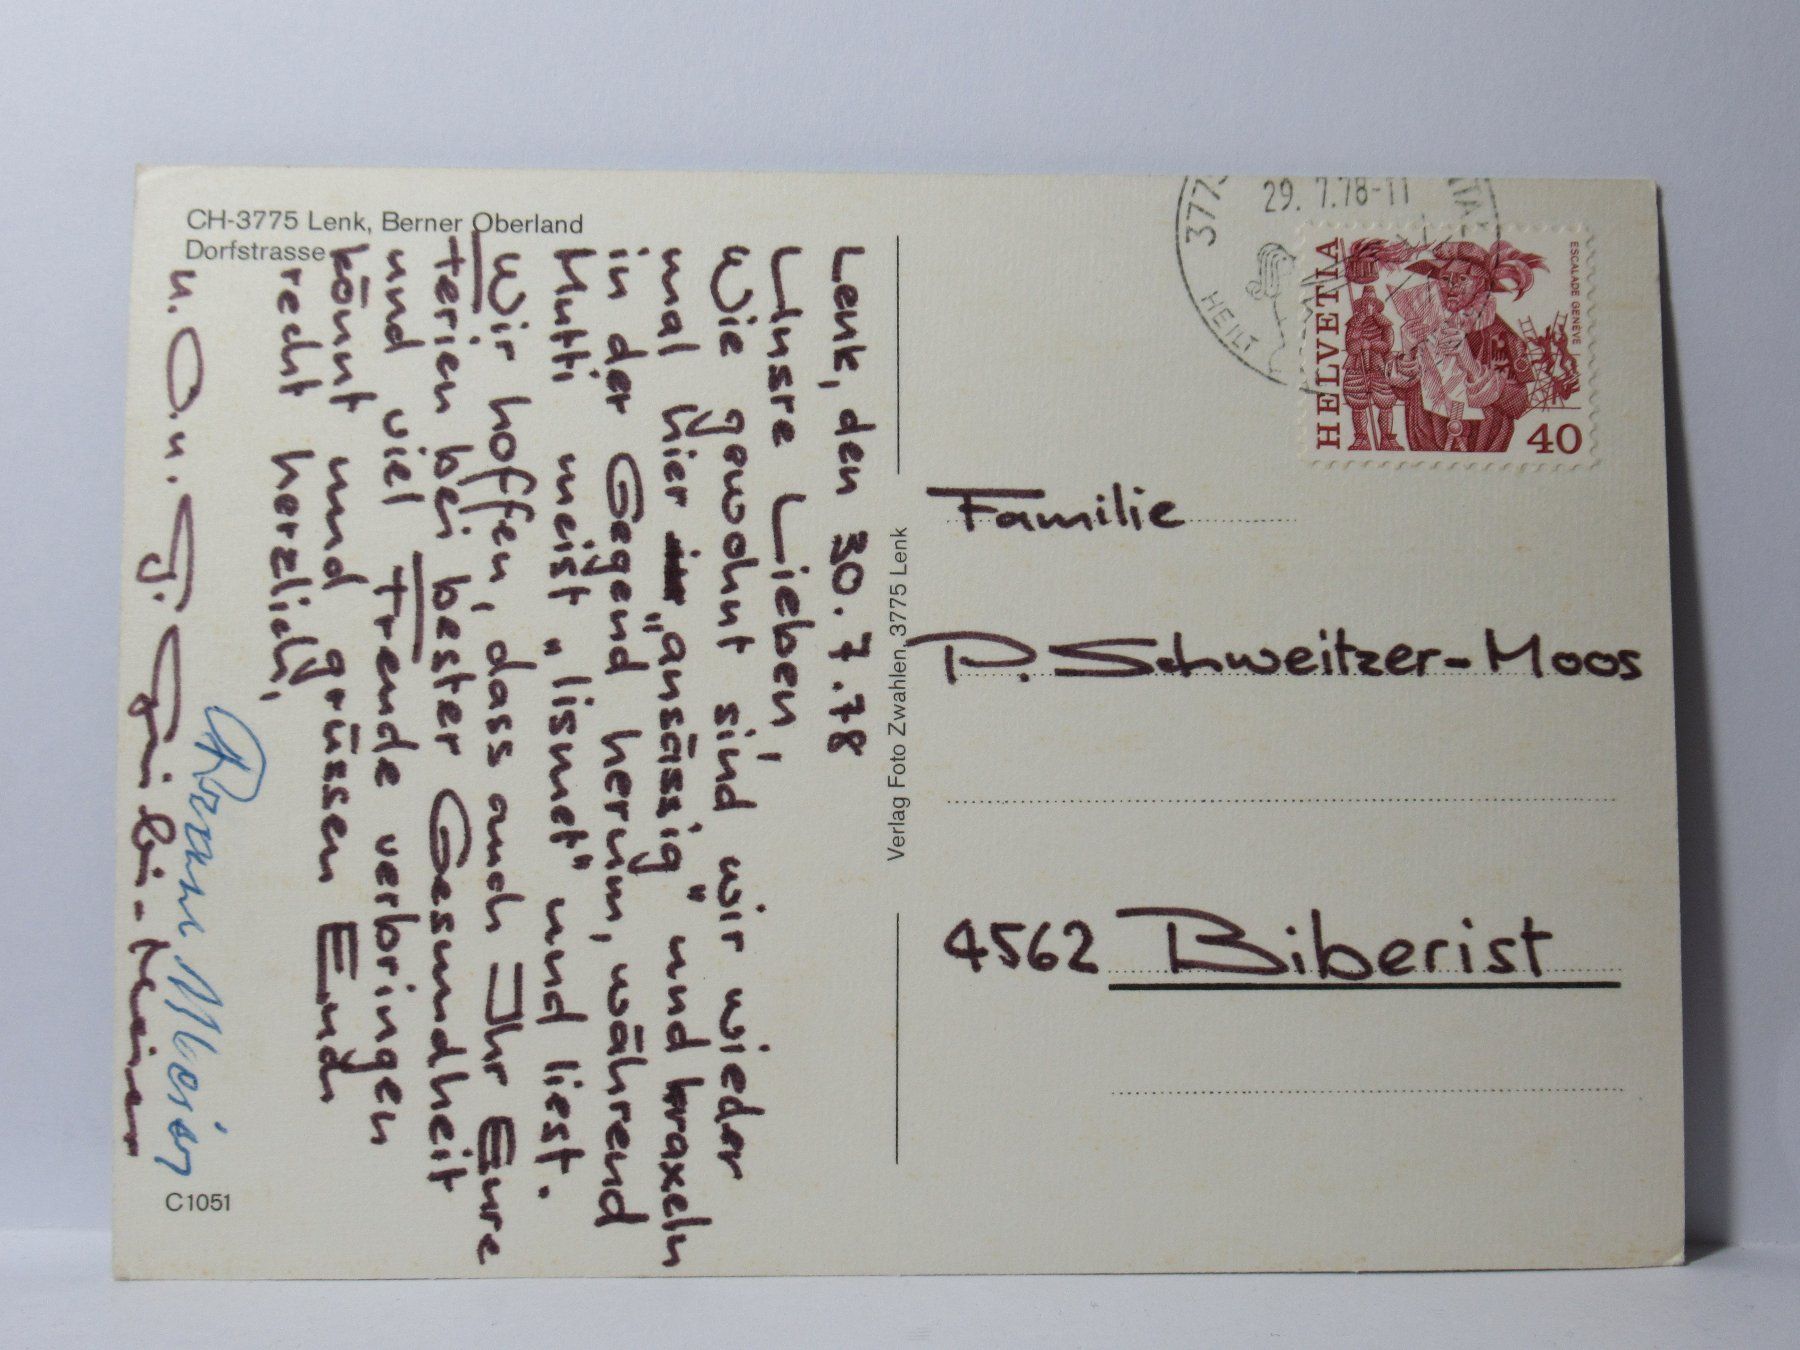 CH-3775 Lenk, Berner Oberland
Dorfstrasse
Lenk, den 30.7.78
Unsre Lieben,
Wie gewohnt sind wir wieder
mal hier „ansässig" und kraxeln
in der Gegend herum, während
Mutti meist „lismet" und liest.
Wir hoffen, dass auch Ihr Eure
Ferien bei bester Gesundheit
und viel Freude verbringen
könnt und grüssen Euch
recht herzlich,
u. O. u. T.
C1051
Verlag Foto Zwahlen, 3775 Lenk
29. 7.78-11
HEILT
HELVETIA
ESCALADE GENÈVE
40
Familie
P. Schweitzer-Moos
4562 Biberist